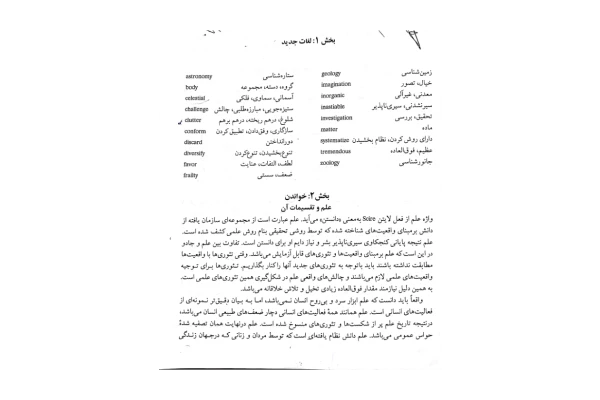 بخش ۱: لغات جدید
geology زمین‌شناسی
imagination خیال، تصور
inorganic معدنی، غیرآلی
insatiable سیرنشدنی، سیری‌ناپذیر
investigation تحقیق، بررسی
matter ماده
systematize دارای روش کردن، نظام بخشیدن
tremendous عظیم، فوق‌العاده
zoology جانورشناسی
astronomy ستاره‌شناسی
body گروه، دسته، مجموعه
celestial آسمانی، سماوی، فلکی
challenge ستیزه‌جویی، مبارزه‌طلبی، چالش
clutter شلوغ، درهم ریخته، درهم برهم
conform سازگاری، وفق‌دادن، تطبیق کردن
discard دورانداختن
diversify تنوع‌بخشیدن، تنوع‌کردن
favor لطف، التفات، عنایت
frailty ضعف، سستی
بخش ۲: خواندن
علم و تقسیمات آن
واژه علم از فعل لاتین Scire به‌معنی «دانستن» می‌آید. علم عبارت است از مجموعه‌ای سازمان یافته از
دانش برمبنای واقعیت‌های شناخته شده که توسط روشی تحقیقی بنام روش علمی کشف شده است.
علم نتیجه پایانی کنجکاوی سیری‌ناپذیر بشر و نیاز دایم او برای دانستن است. تفاوت بین علم و جادو
در این است که علم برمبنای واقعیت‌ها و تئوری‌های قابل آزمایش می‌باشد. وقتی تئوری‌ها با واقعیت‌ها
مطابقت نداشته باشند باید باتوجه به تئوری‌های جدید آنها راکنار بگذاریم. تئوری‌ها برای توجیه
واقعیت‌های علمی لازم می‌باشند و چالش‌های واقعی علم در شکل‌گیری همین تئوری‌های علمی است.
به همین دلیل نیازمند مقدار فوق‌العاده زیادی تخیل و تلاش خلاقانه می‌باشد.
واقعاً باید دانست که علم ابزار سرد و بی‌روح انسان نمی‌باشد، اما به بیان دقیق‌تر نمونه‌ای از
فعالیت‌های انسانی است. علم همانند همهٔ فعالیت‌های انسانی دچار ضعف‌های طبیعی انسان می‌باشد،
درنتیجه تاریخ علم پر از شکست‌ها و تئوری‌های منسوخ شده است. علم درنهایت همان تصفیه شدهٔ
حواس عمومی می‌باشد. علم دانش نظام یافته‌ای است که توسط مردان و زنانی که درجهان زندگی